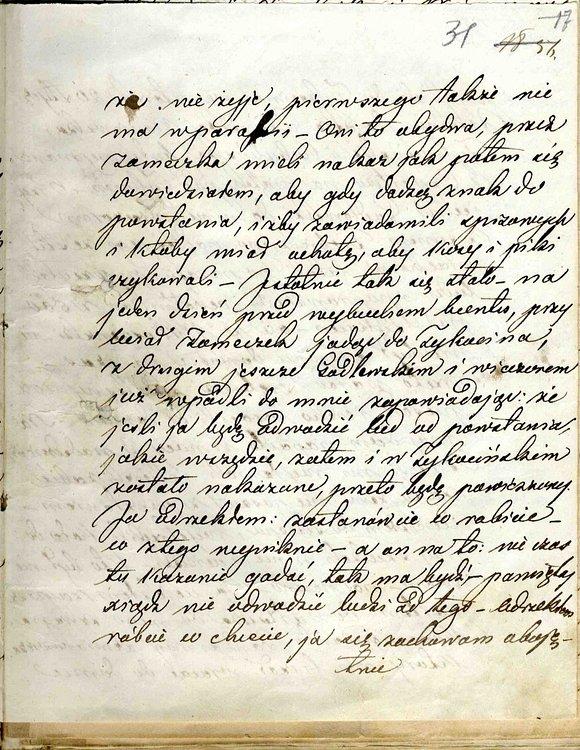 17
31 18 36.
że nie żyje, pierwszego także nie
ma w parafii – Oni to obydwa, przez
Zameczka mieli nakaz jak potem się
dowiedziałem, aby gdy dadzą znak do
powstania, iżby zawiadomili spisanych
i ktoby miał ochotę, aby kosy i piki
szykowali – Istotnie tak się stało – na
jeden dzień przed wybuchem buntu, przy
leciał Zameczek jadąc do Tykocina,
z drugim jeszcze Godlewskim i wieczorem
już wpadli do mnie zapowiadając: że
jeśli ja będę odwodził lud od powstania,
jakie wszędzie, zatem i w Tykocińskim
zostało nakazane, przeto będę powieszony
Ja odrzekłem: zastanówcie co robicie –
co z tego wyniknie – a on na to: nie czas
tu kazanie gadać, tak ma być – pamiętaj
ksiądz nie odwodzić ludzi od tego – odrzekłem
róbcie co chcecie, ja się zachowam oboję–
tnie